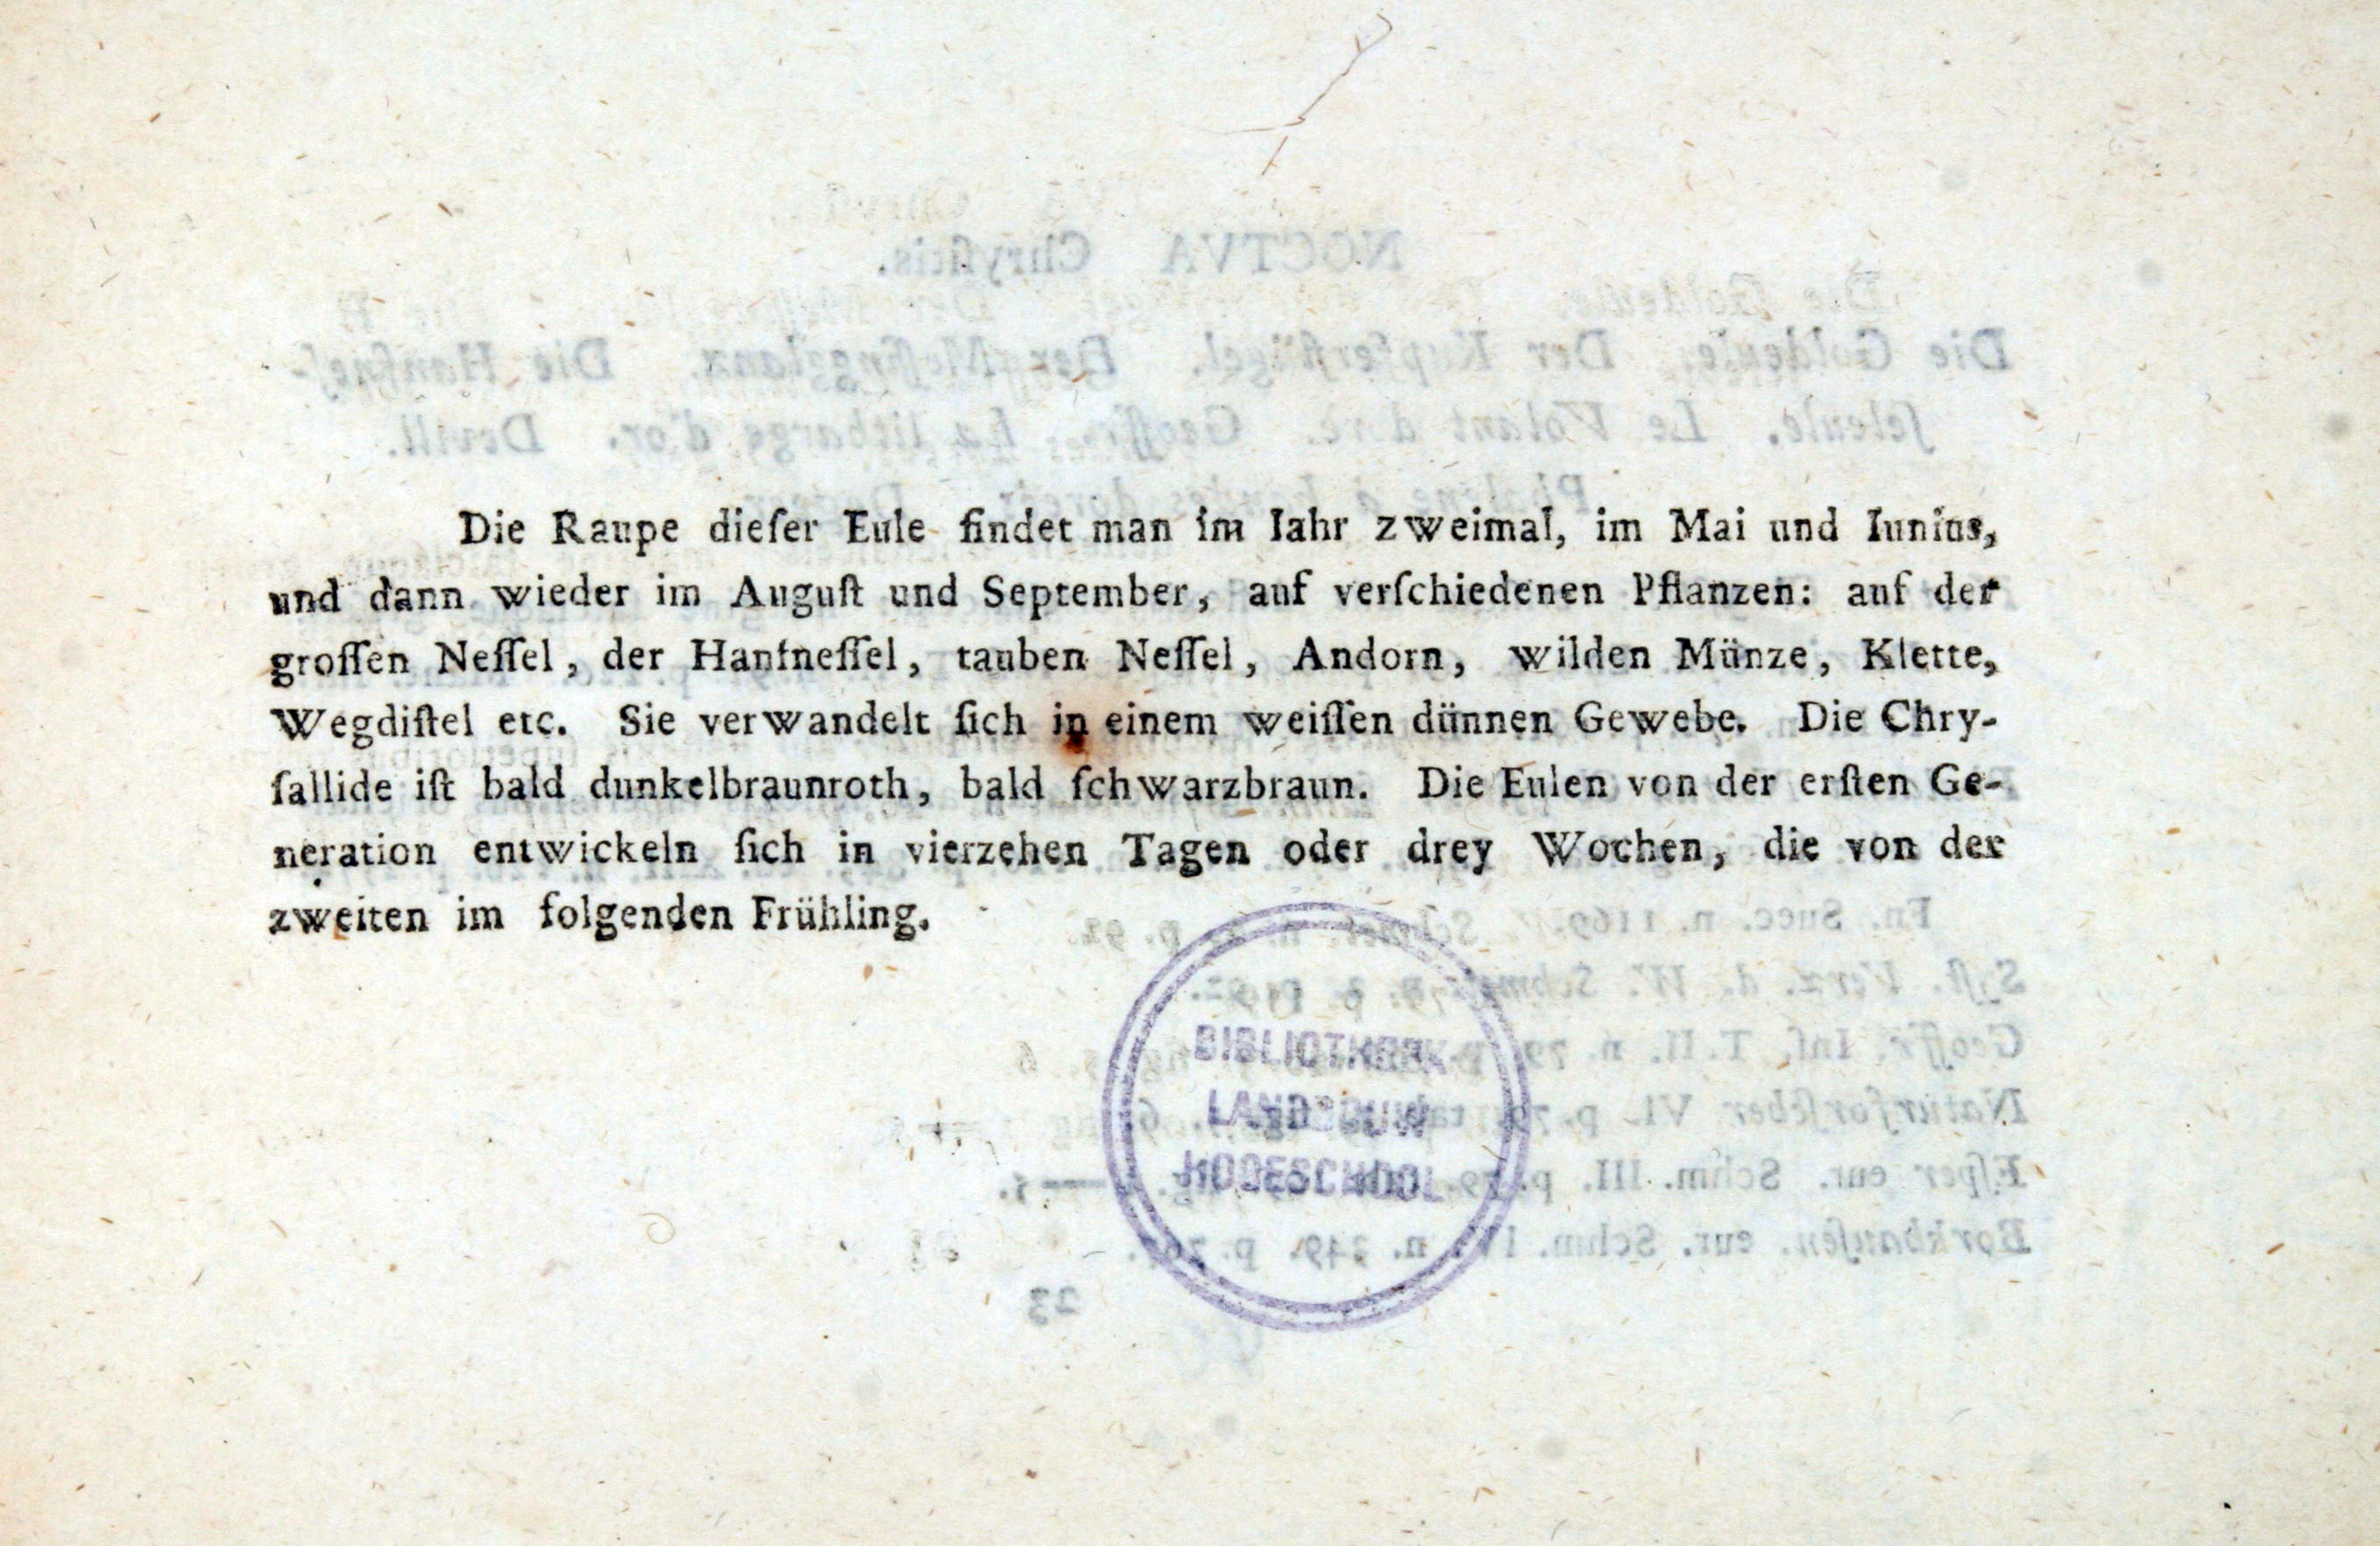 Die Raupe dieſer Eule findet man im Iahr zweimal, im Mai und Iunius,
und dann wieder im Auguſt und September, auf verſchiedenen Pflanzen: auf der
groſſen Neſſel, der Hanfneſſel, tauben Neſſel, Andorn, wilden Münze, Klette,
Wegdiſtel etc. Sie verwandelt ſich in einem weiſſen dünnen Gewebe. Die Chry-
ſallide iſt bald dunkelbraunroth, bald ſchwarzbraun. Die Eulen von der erſten Ge-
neration entwickeln ſich in vierzehen Tagen oder drey Wochen, die von der
zweiten im folgenden Frühling.
BIBLIOTHEEK
LANDBOUW
HOGESCHOOL